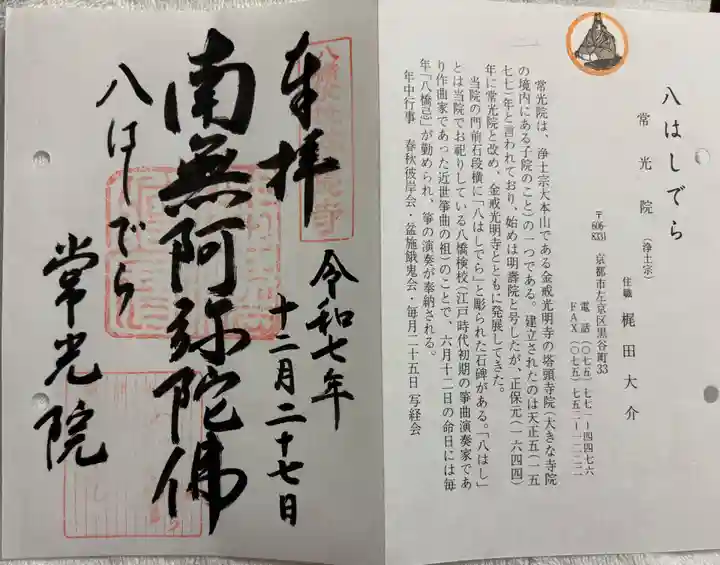 八はしでら
常光院（浄土宗）
住職 梶田大介
〒606-8331 京都市左京区黒谷町33
電話（〇七五）七七一ー四四七六
FAX（〇七五）七五二ー一二二二
常光院は、浄土宗大本山である金戒光明寺の塔頭寺院（大きな寺院
の境内にある子院のこと）の一つである。建立されたのは天正五（一五
七七）年と言われており、始めは明壽院と号したが、正保元（一六四四）
年に常光院と改め、金戒光明寺とともに発展してきた。
当院の門前石段横に「八はしでら」と彫られた石碑がある。「八はし」
とは当院でお祀りしている八橋検校（江戸時代初期の箏曲演奏家であ
り作曲家であった近世箏曲の祖）のことで、六月十二日の命日には毎
年「八橋忌」が勤められ、箏の演奏が奉納される。
年中行事 春秋彼岸会・盆施餓鬼会・毎月二十五日 写経会
奉拝
令和七年
十二月二十七日
南無阿弥陀佛
八はしでら
常光院